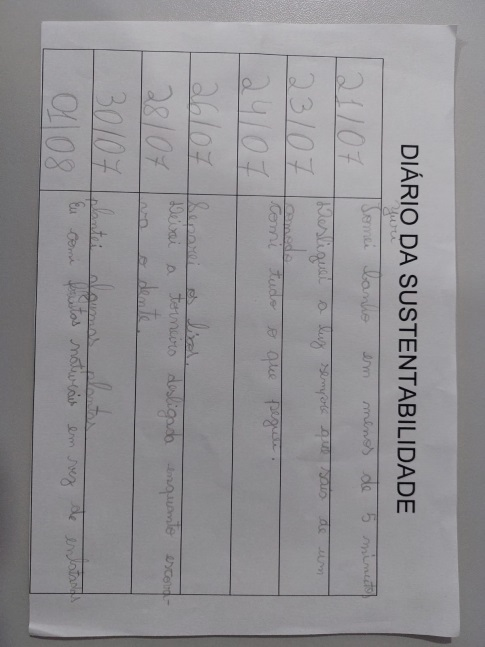 DIÁRIO DA SUSTENTABILIDADE
Yuri
21/07 Tomei banho em menos de 5 minutos
23/07 Desliguei a luz sempre que saio de um
comodo
24/07 Comi tudo o que peguei.
26/07 Separei os lixos.
28/07 Deixei a torneira desligada enquanto escova-
va o dente.
30/07 plantei algumas plantas
01/08 Eu comi frutas naturais em vez de